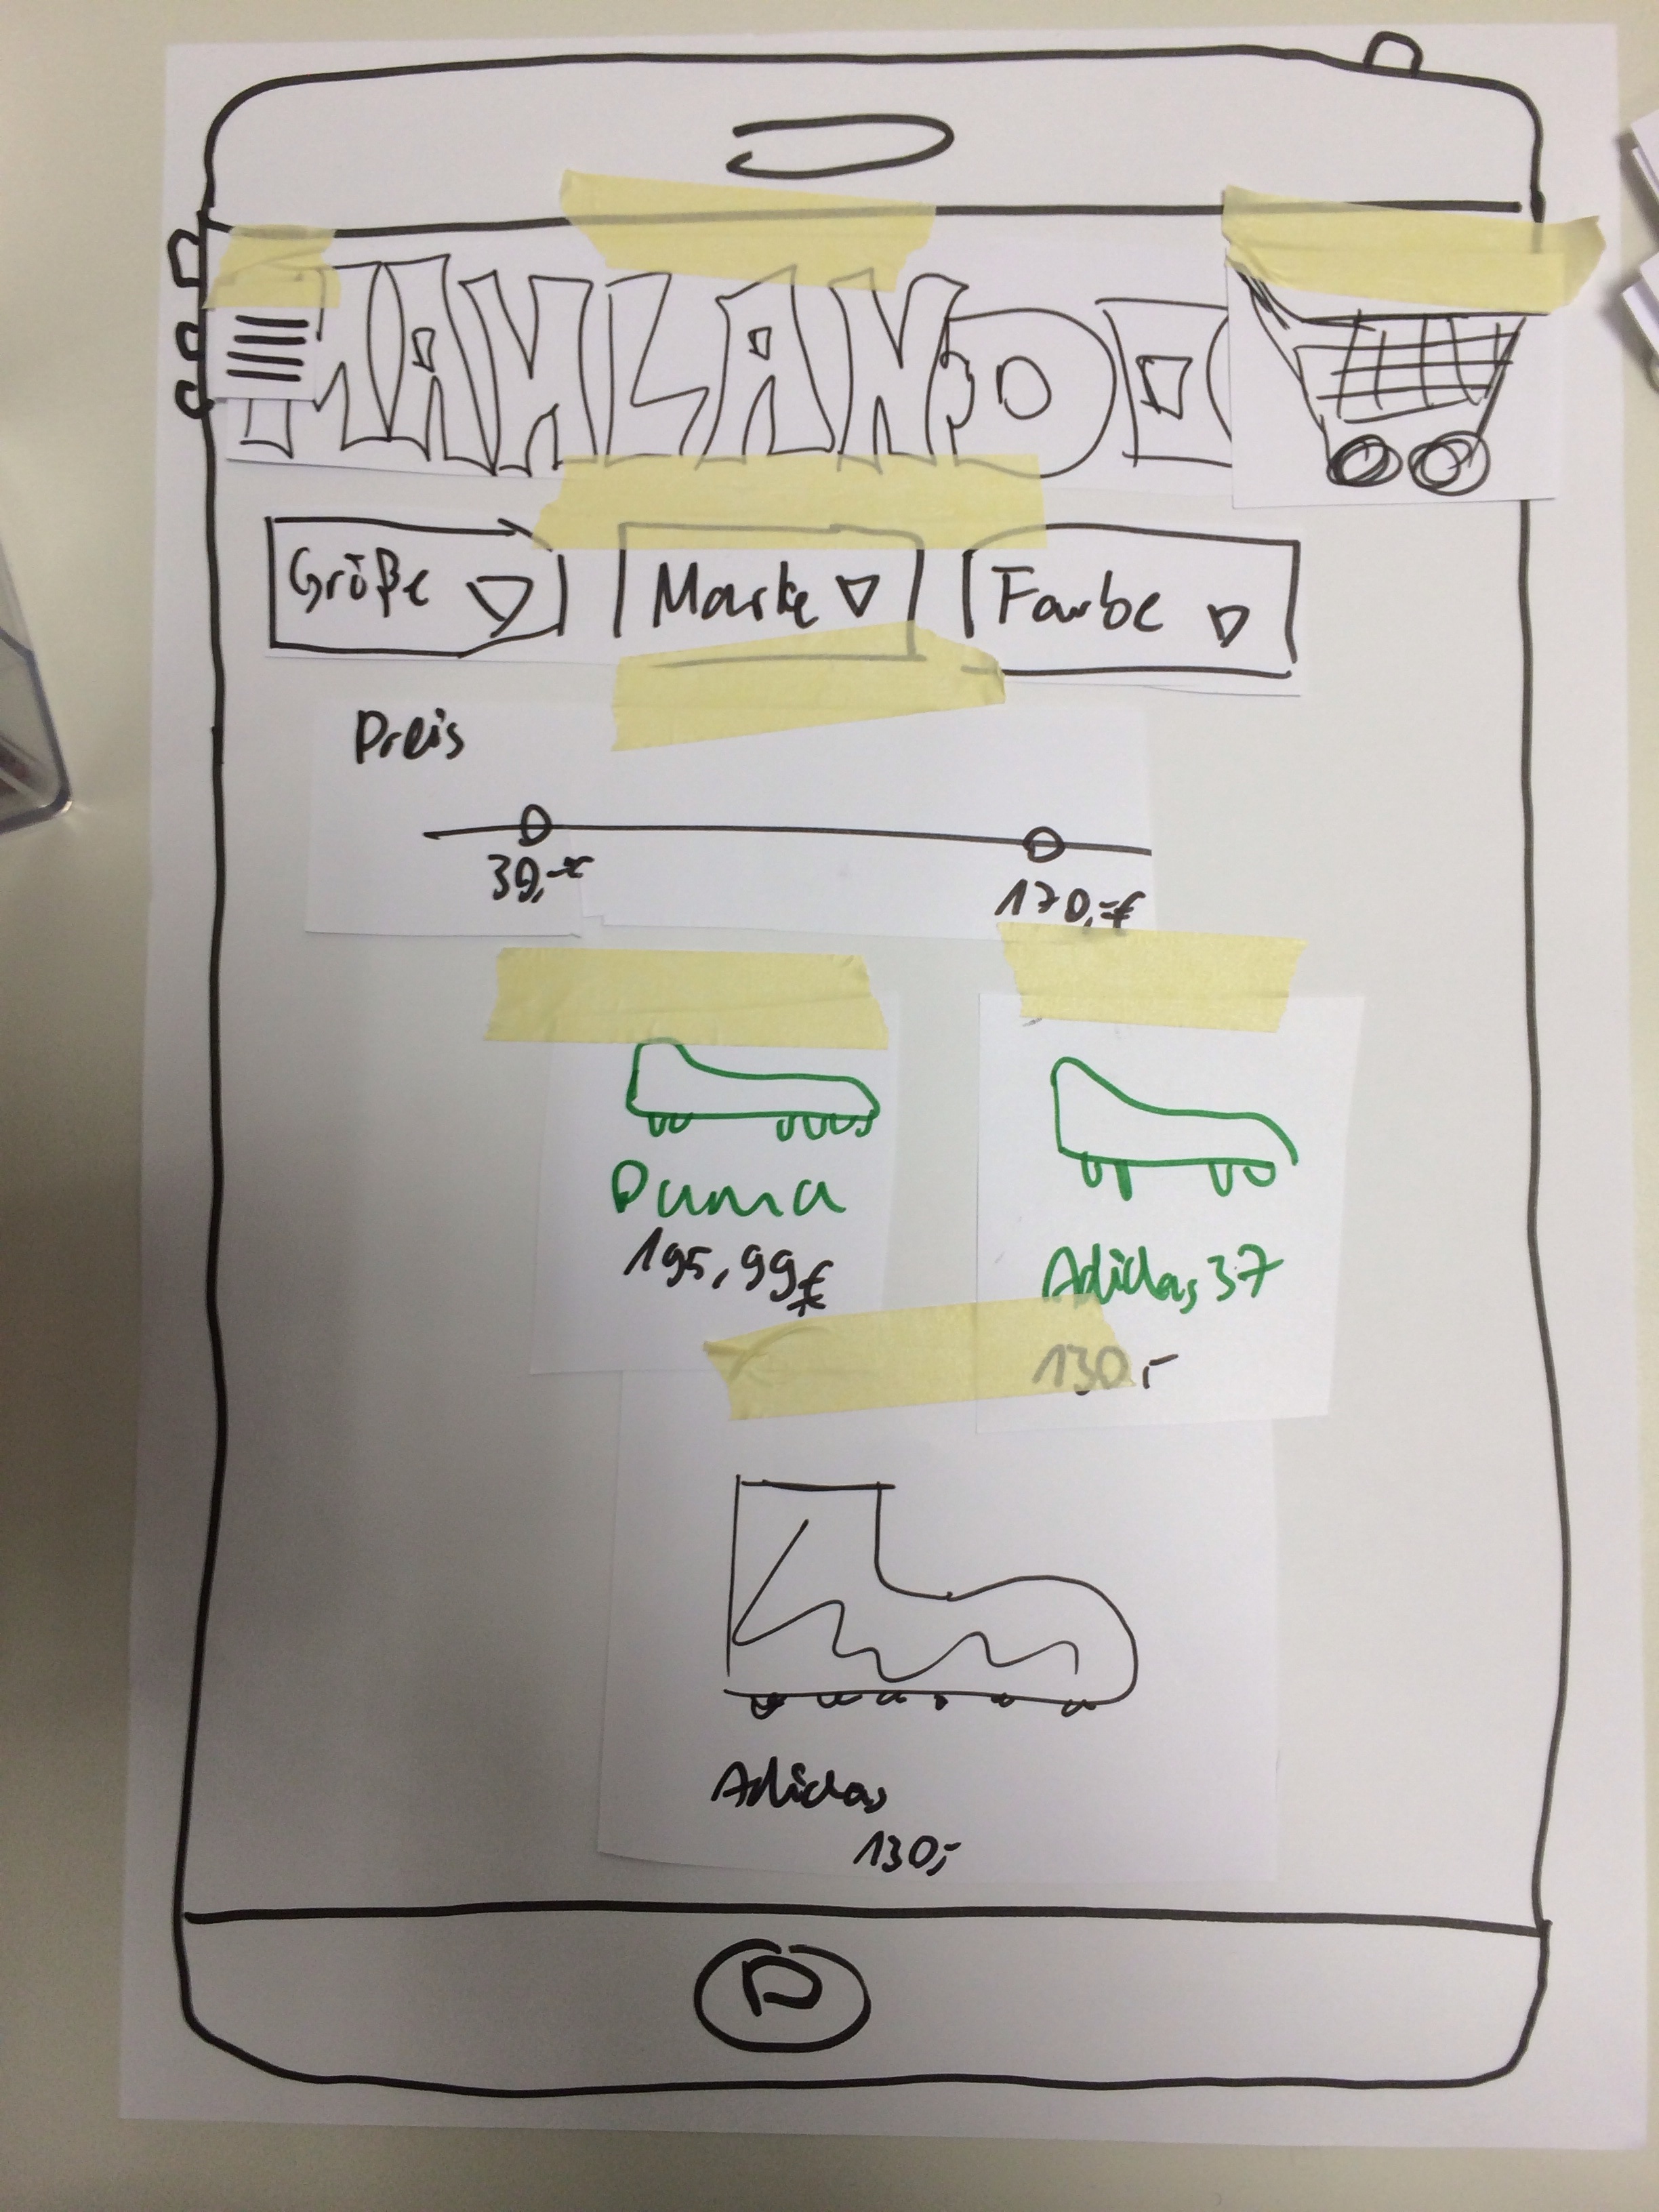 Größe Marke Farbe
Preis
39,-€ 170,-€
Puma
195,99€
Adidas 37
130,-
Adidas
130,-